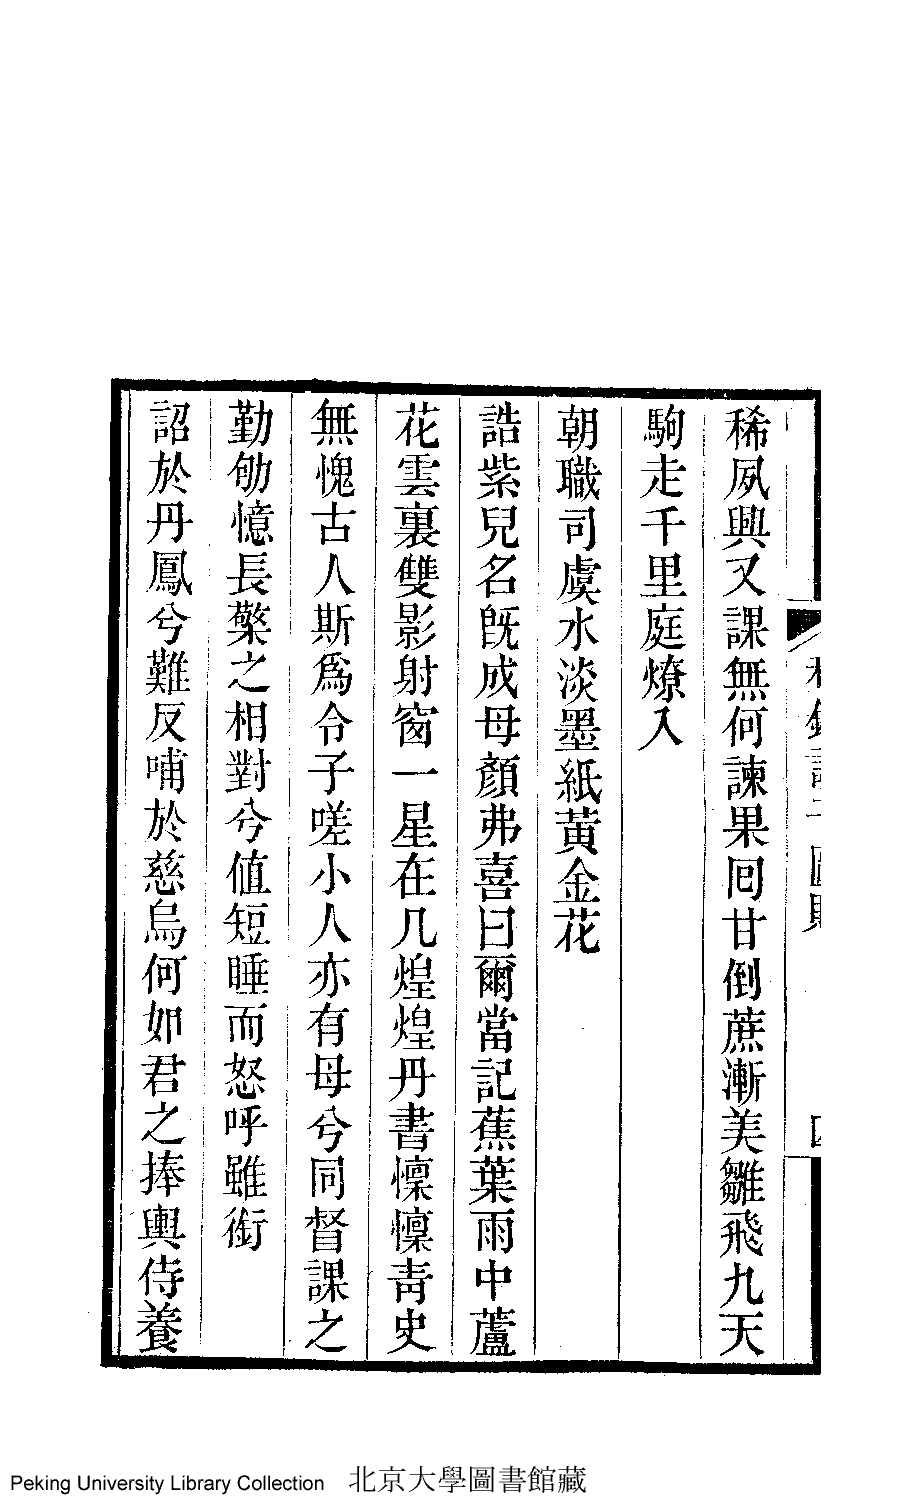 稀夙興又課無何諫果囘甘倒蔗漸美雛飛九天
駒走千里庭燎入
朝職司虞水淡墨紙黃金花
誥紫兒名旣成母顏弗喜曰爾當記蕉葉雨中蘆
花雲裏雙影射窗一星在几煌煌丹書懍懍靑史
無愧古人斯爲令子嗟小人亦有母兮同督課之
勤劬憶長檠之相對兮値短睡而怒呼雖銜
詔於丹鳳兮難反哺於慈烏何如君之捧輿侍養
Peking University Library Collection 北京大學圖書館藏